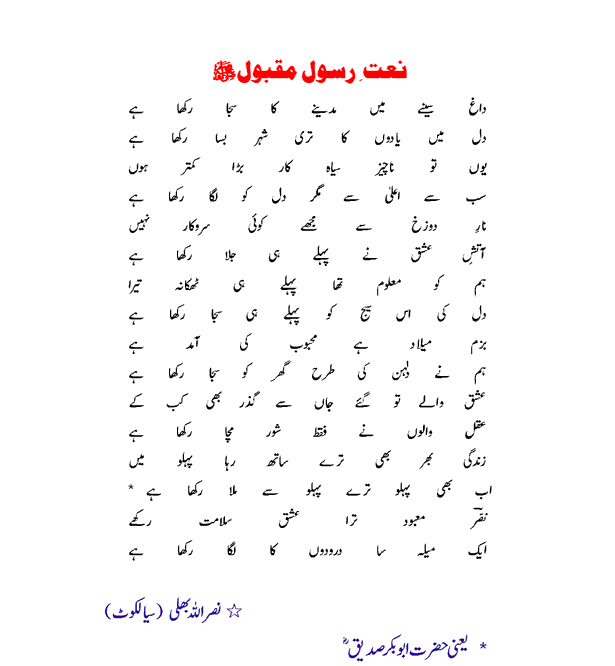 نعتِ رسول مقبول ﷺ
داغ سینے میں مدینے کا سجا رکھا ہے
دل میں یادوں کا تری شہر بسا رکھا ہے
یوں تو ناچیز سیاہ کار بڑا کمتر ہوں
سب سے اعلیٰ سے مگر دل کو لگا رکھا ہے
نارِ دوزخ سے مجھے کوئی سروکار نہیں
آتشِ عشق نے پہلے ہی جلا رکھا ہے
ہم کو معلوم تھا پہلے ہی ٹھکانہ تیرا
دل کی اس سیج کو پہلے ہی سجا رکھا ہے
بزم میلاد ہے محبوب کی آمد ہے
ہم نے دلہن کی طرح گھر کو سجا رکھا ہے
عشق والے تو گئے جاں سے گذر بھی کب کے
عقل والوں نے فقط شور مچا رکھا ہے
زندگی بھر بھی ترے ساتھ رہا پہلو میں
اب بھی پہلو ترے پہلو سے ملا رکھا ہے *
نصرؔ معبود ترا عشق سلامت رکھے
ایک میلہ سا درودوں کا لگا رکھا ہے
☆ نصر اللہ بھلی (سیالکوٹ)
* یعنی حضرت ابوبکر صدیقؓ